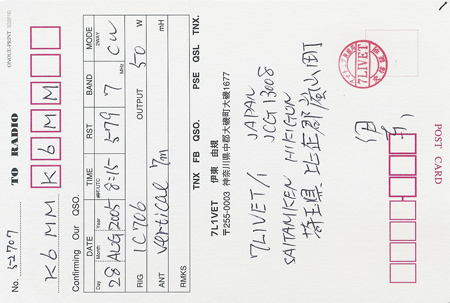 ONOUE-PRINT
TO RADIO
K 6 M M
No. 52707
K6MM
Confirming Our QSO.
DATE TIME RST BAND MODE
Day Month Year
MHz 2WAY
28 AUG 2005 8:15 579 7 CW
RIG IC706 OUTPUT 50 W
ANT Vertical 7m mH
RMKS
TNX FB QSO. PSE QSL TNX.
7L1VET 伊東 由規
〒255-0003 神奈川県中郡大磯町大磯1677
7L1VET/1 JAPAN
SAITAMAKEN JCCG 13008
HIKIGUN
埼玉県比企郡嵐山町
7L1VET
伊東
POST CARD